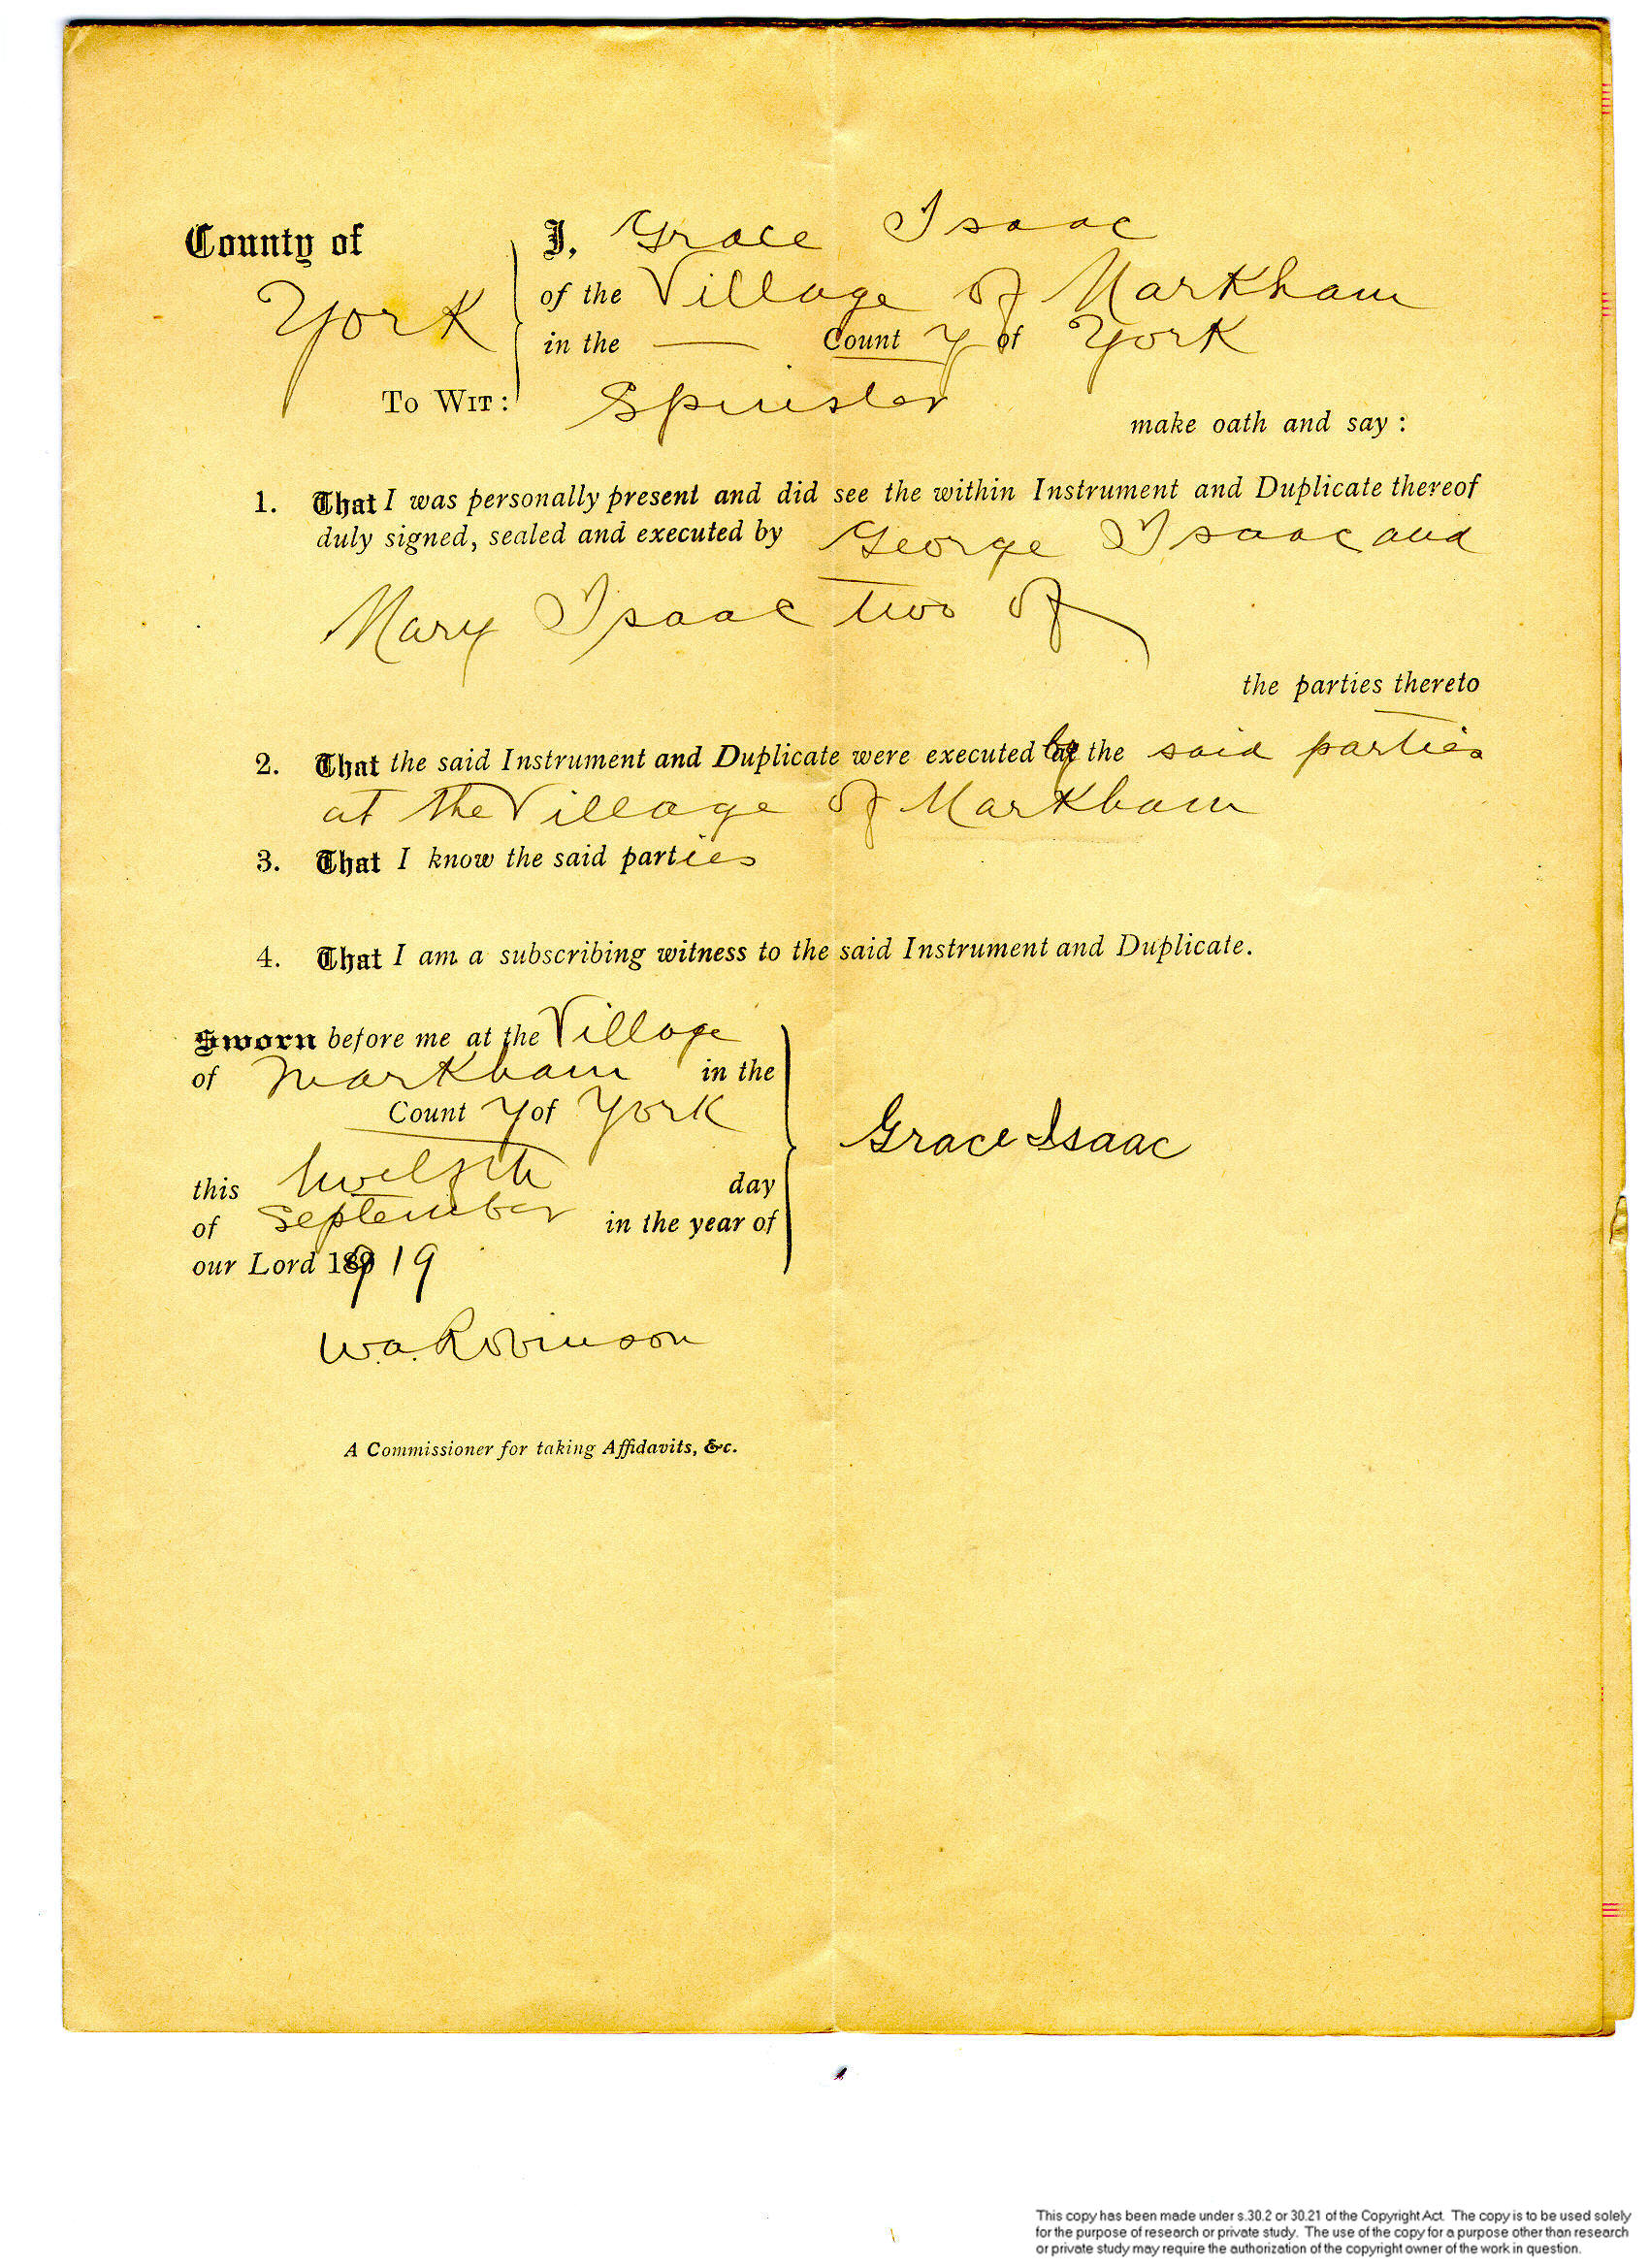 County of
York
To Wit:
I, Grace Isaac
of the Village of Markham
in the — County of York
Spinster
make oath and say:
1. That I was personally present and did see the within Instrument and Duplicate thereof
duly signed, sealed and executed by George Isaac and
Mary Isaac two of
the parties thereto
2. That the said Instrument and Duplicate were executed by the said parties
at the Village of Markham
3. That I know the said parties
4. That I am a subscribing witness to the said Instrument and Duplicate.
Sworn before me at the Village
of Markham in the
County of York
this twelfth day
of September in the year of
our Lord 1919
Grace Isaac
W.A. Robinson
A Commissioner for taking Affidavits, &c.
This copy has been made under s.30.2 or 30.21 of the Copyright Act. The copy is to be used solely
for the purpose of research or private study. The use of the copy for a purpose other than research
or private study may require the authorization of the copyright owner of the work in question.